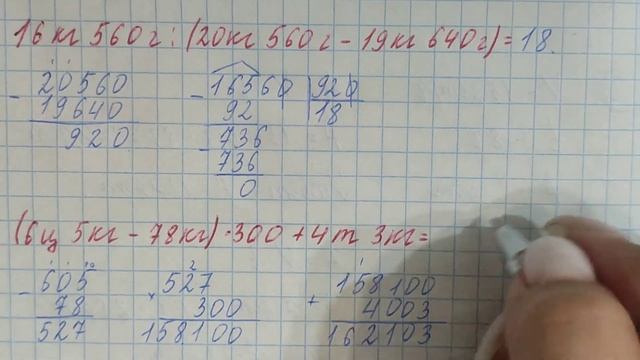 16 кг 560 г : (20 кг 560 г - 19 кг 640 г) = 18.
- 20560 - 16560 | 920
19640 92 18
920 736
736
0
(6 ц 5 кг - 78 кг) · 300 + 4 т 3 кг =
- 605 × 527 + 158100
78 300 4003
527 158100 162103